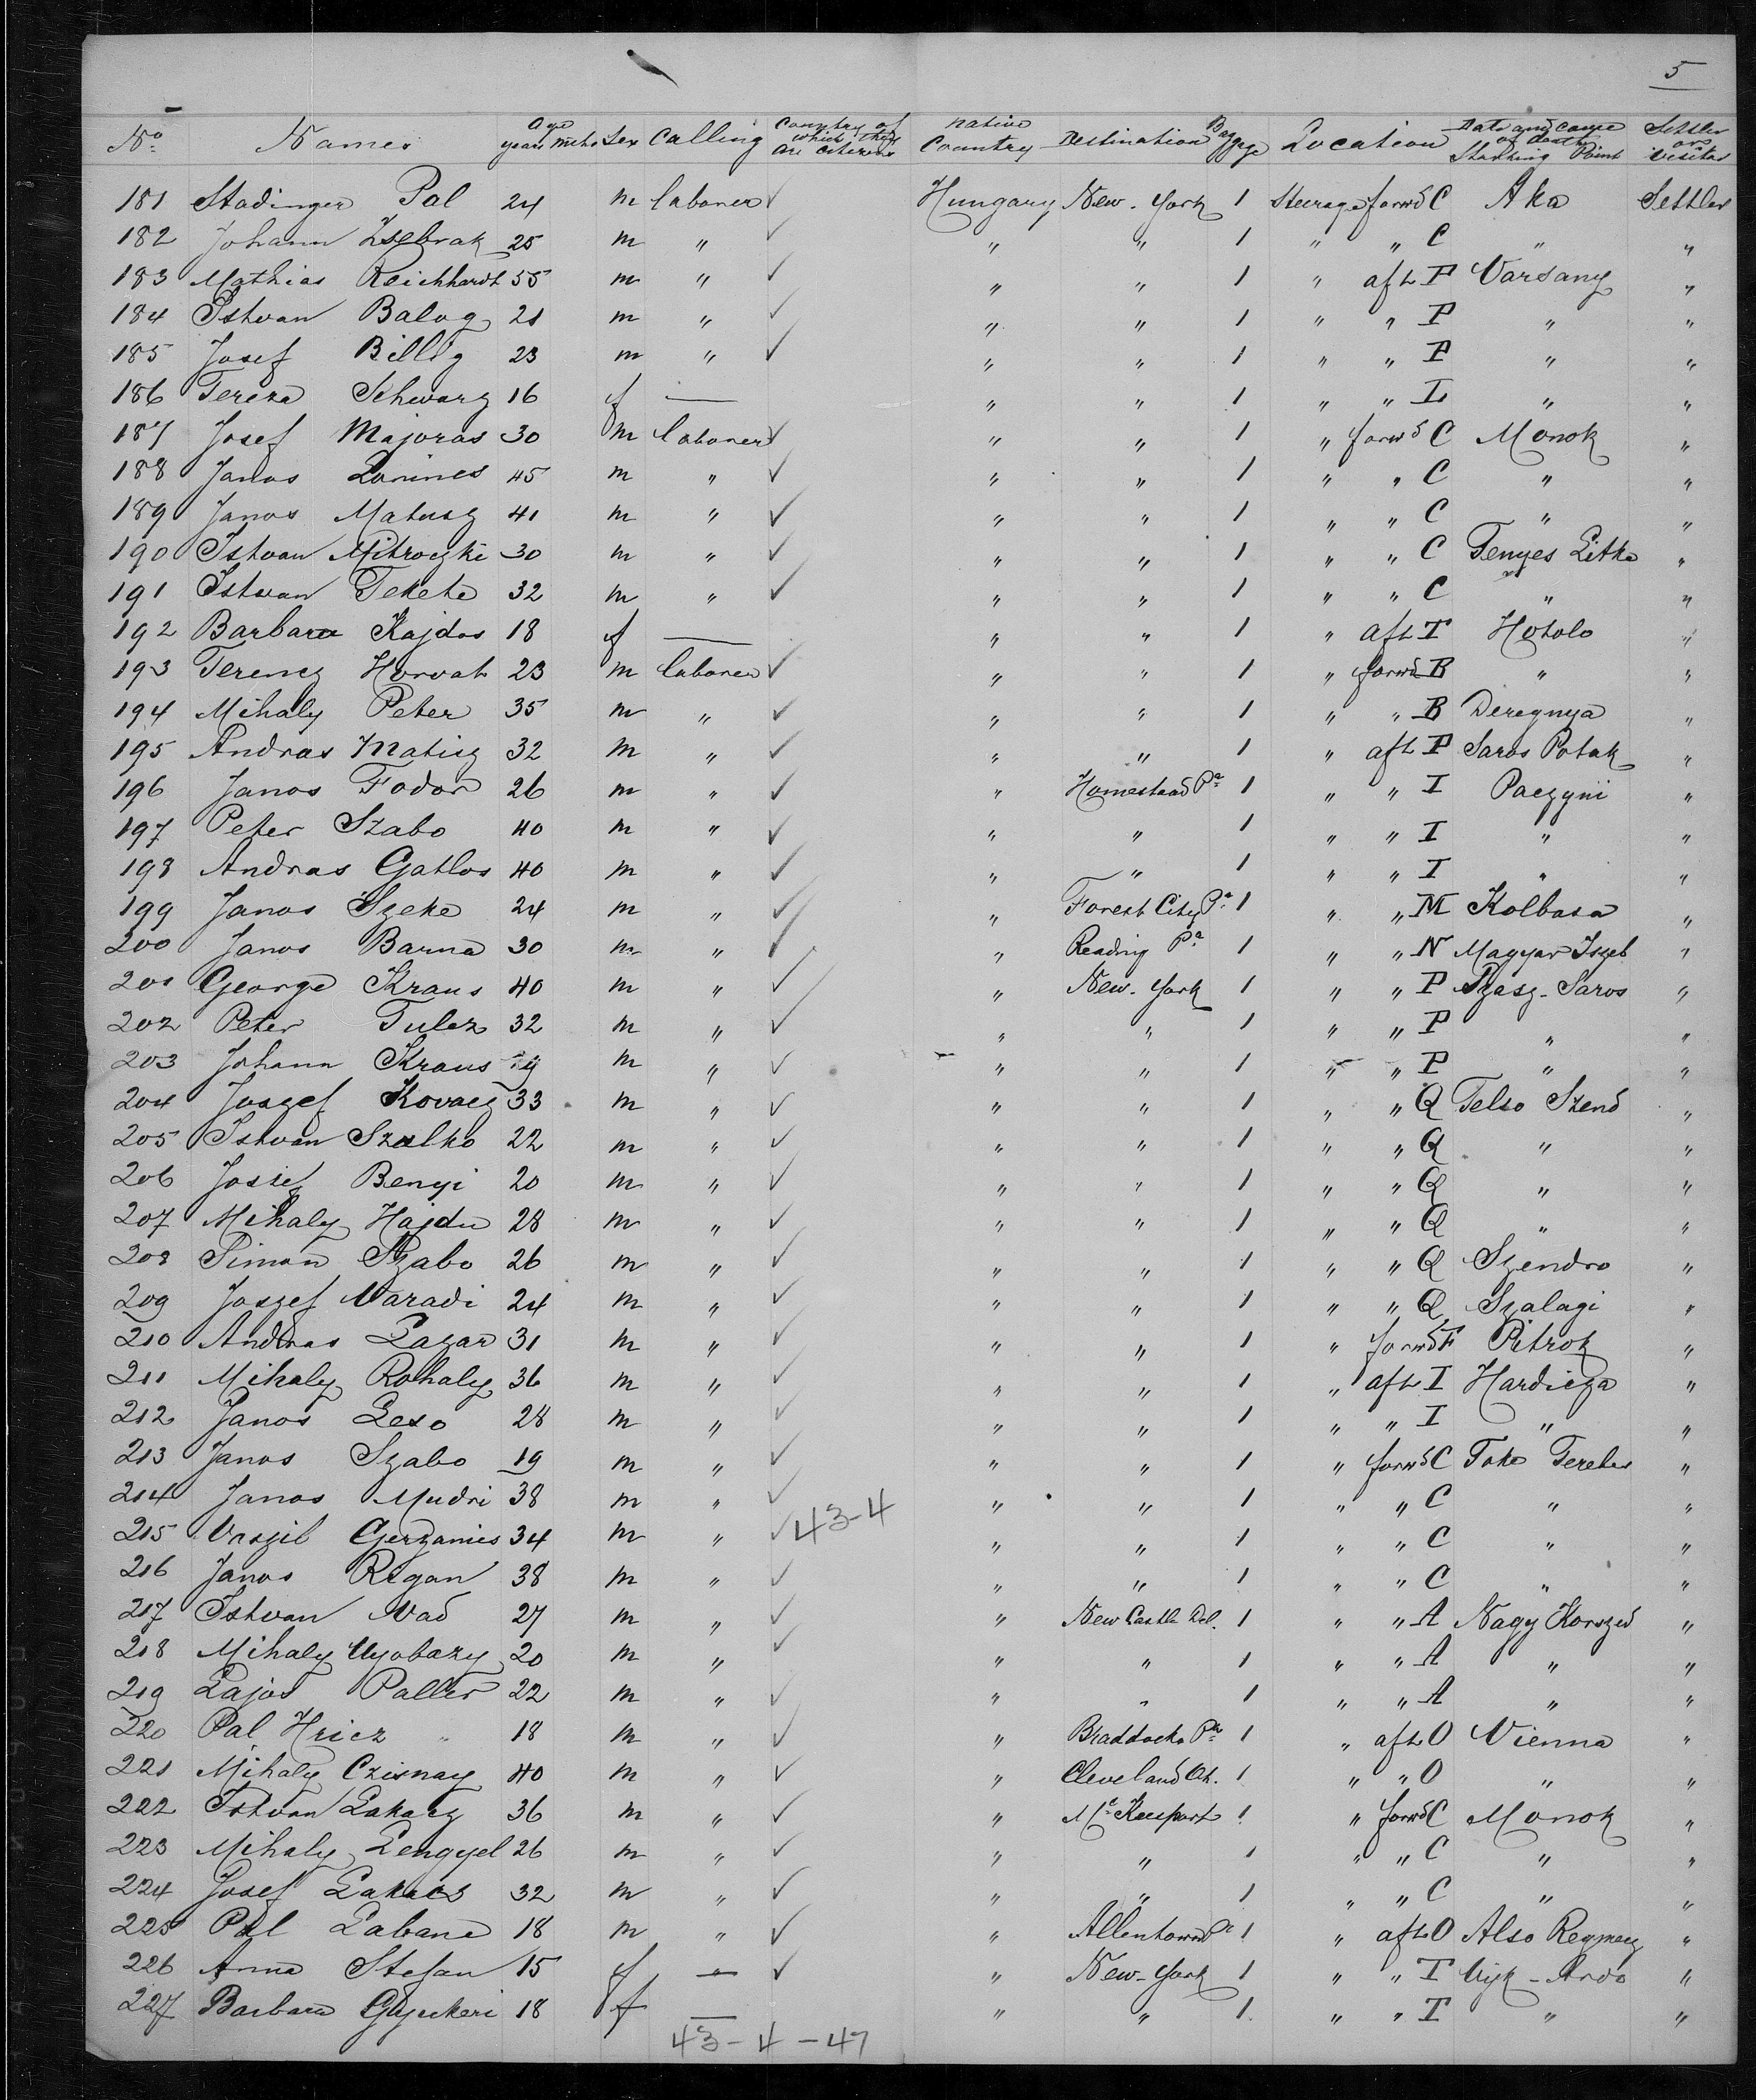 5
No. Names Age years mths Sex Calling Country of which they are citizens native Country Destination Baggage Location Date and cause of death Starting Point Settler or visitor
181 Stadinger Pal 24 m laborer ✓ Hungary New-York 1 Steerage forwd C Aka Settler
182 Johann Zsebrak 25 m " ✓ " " 1 " " C " "
183 Mathias Reichhardt 55 m " ✓ " " 1 " aft P Varsany "
184 Istvan Balog 21 m " ✓ " " 1 " " P " "
185 Josef Billig 23 m " ✓ " " 1 " " P " "
186 Tereza Schwarz 16 f — " " 1 " " L " "
187 Josef Majoras 30 m laborer ✓ " " 1 " forwd C Monok "
188 Janos 45 m " ✓ " " 1 " " C " "
189 Janos Matusz 41 m " ✓ " " 1 " " C " "
190 Istvan Mitroczki 30 m " ✓ " " 1 " " C Fenyes Litke "
191 Istvan Fekete 32 m " ✓ " " 1 " " C " "
192 Barbara Kajdos 18 f — " " 1 " aft T Hotolo "
193 Ferencz Horvat 23 m laborer ✓ " " 1 " forwd B " "
194 Mihaly Peter 35 m " ✓ " " 1 " " B Deregnya "
195 Andras Matisz 32 m " ✓ " " 1 " aft P Saros Potak "
196 Janos Fodor 26 m " ✓ " Homestead Pa 1 " " I "
197 Peter Szabo 40 m " ✓ " " 1 " " I " "
198 Andras Gatlos 40 m " ✓ " " 1 " " I " "
199 Janos Szeke 24 m " ✓ " Forest City Pa 1 " " M Kolbasa "
200 Janos Barna 30 m " ✓ " Reading Pa 1 " " N Magyar Iszeb "
201 George Kraus 40 m " ✓ " New-York 1 " " P Szasz-Saros "
202 Peter Tulez 32 m " ✓ " " 1 " " P " "
203 Johann Kraus m " ✓ " " 1 " " P " "
204 Joszef Kovacz 33 m " ✓ " " 1 " " Q Felso Szend "
205 Istvan Szalko 22 m " ✓ " " 1 " " Q " "
206 Benyi 20 m " ✓ " " 1 " " Q " "
207 Mihaly Hajdu 28 m " ✓ " " 1 " " Q " "
208 Simon Szabo 26 m " ✓ " " 1 " " Q Szendro "
209 Joszef Varadi 24 m " ✓ " " 1 " " Q Szalagi "
210 Andras Lazar 31 m " ✓ " " 1 " forwd F Pitrok "
211 Mihaly Rohaly 36 m " ✓ " " 1 " aft I Hardicza "
212 Janos Leso 28 m " ✓ " " 1 " " I " "
213 Janos Szabo 19 m " ✓ " " 1 " forwd C Toke Terebes "
214 Janos Mudri 38 m " ✓ " " 1 " " C " "
215 Vaszil Gerzanics 34 m " ✓ 43-4 " " 1 " " C " "
216 Janos Regan 38 m " ✓ " " 1 " " C " "
217 Istvan Vad 27 m " ✓ " New Castle Del. 1 " " A Nagy "
218 Mihaly Ujobazy 20 m " ✓ " " 1 " " A " "
219 Lajos Paller 22 m " ✓ " " 1 " " A " "
220 Pal Hricz 18 m " ✓ " Braddocks Pa 1 " aft O Vienna "
221 Mihaly Czismay 40 m " ✓ " Cleveland Oh. 1 " " O " "
222 Istvan Lakacz 36 m " ✓ " McKeesport 1 " forwd C Monok "
223 Mihaly Lengyel 26 m " ✓ " " 1 " " C " "
224 Josef Lakacs 32 m " ✓ " " 1 " " C " "
225 Pal Labanc 18 m " ✓ " Allentown Pa 1 " aft O Also Regmecz "
226 Anna Stefan 15 f — ✓ " New-York 1 " " T Ujk-Ardo "
227 Barbara Gyukeri 18 f — " " 1 " " T " "
43-4-47